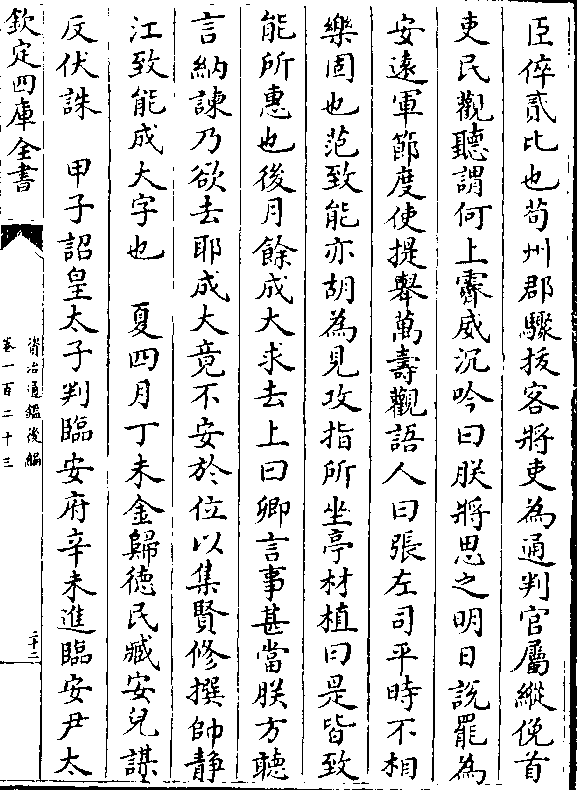 臣倅貳比也茍州郡驟拔客將吏為通判官屬縱俛首
吏民觀聽謂何上霽威沉吟曰朕將思之明日說罷為
安遠軍節度使提舉萬壽觀語人曰張左司平時不相
樂固也范致能亦胡為見攻指所坐亭材植曰是皆致
能所惠也後月餘成大求去上曰卿言事甚當朕方聽
言納諫乃欲去耶成大竟不安於位以集賢修撰帥静
江致能成大字也　夏四月丁未金歸德民臧安兒謀
反伏誅　甲子詔皇太子判臨安府辛未進臨安尹太
欽定四庫全書
資治通鑑後編
卷一百二十三
二十三